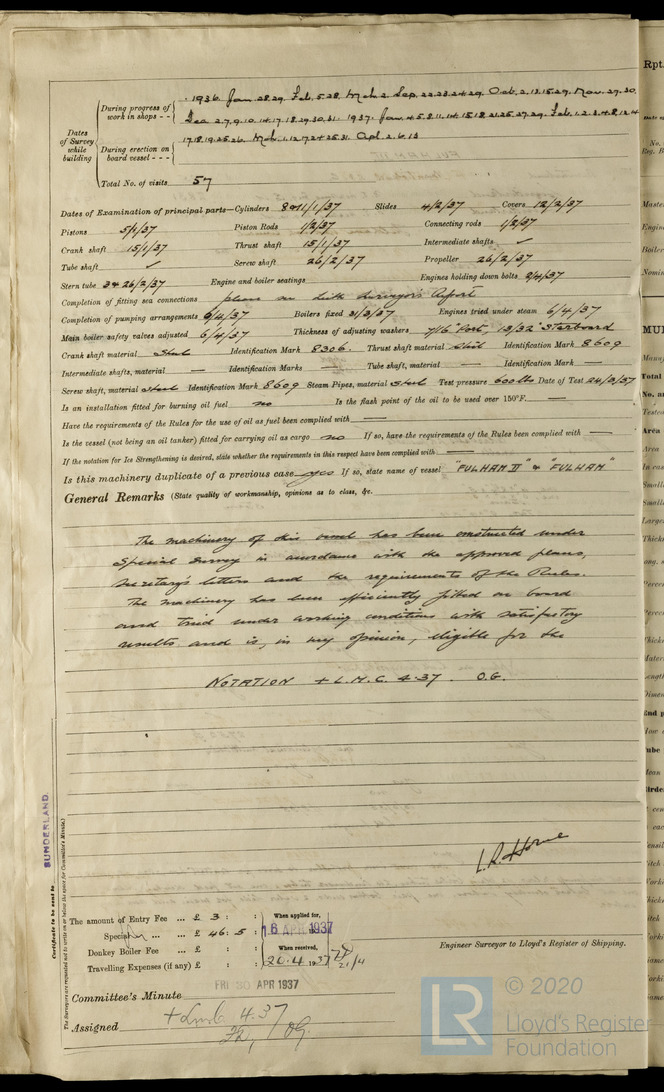 Dates of Survey while building
During progress of work in shops - -
1936. Jan. 28.29. Feb. 5.28. Mch. 2. Sep. 22.23.24.29. Oct. 2.13.15.29. Nov. 27.30.
Dec. 2.7.9.10.14.17.18.29.30.31. 1937. Jan. 4.5.8.11.14.15.18.21.25.27.29. Feb. 1.2.3.4.8.12.14
During erection on board vessel - - -
17.18.19.25.26. Mch. 1.12.17.24.25.31. Apl. 2.6.13
Total No. of visits 57
Dates of Examination of principal parts—Cylinders 8&11/1/37 Slides 4/2/37 Covers 12/2/37
Pistons 5/1/37 Piston Rods 1/2/37 Connecting rods 1/2/37
Crank shaft 15/1/37 Thrust shaft 15/1/37 Intermediate shafts ✓
Tube shaft ✓ Screw shaft 26/2/37 Propeller 26/2/37
Stern tube 3&26/2/37 Engine and boiler seatings Engines holding down bolts 2/4/37
Completion of fitting sea connections please see with Surveyor's Report
Completion of pumping arrangements 6/4/37 Boilers fixed 31/3/37 Engines tried under steam 6/4/37
Main boiler safety valves adjusted 6/4/37 Thickness of adjusting washers 7/16" Port, 13/32" Starboard
Crank shaft material Steel Identification Mark 8306. Thrust shaft material Steel Identification Mark 8609
Intermediate shafts, material — Identification Marks — Tube shaft, material — Identification Mark —
Screw shaft, material Steel Identification Mark 8609 Steam Pipes, material Steel Test pressure 600 lbs Date of Test 24/3/37
Is an installation fitted for burning oil fuel no Is the flash point of the oil to be used over 150°F. —
Have the requirements of the Rules for the use of oil as fuel been complied with —
Is the vessel (not being an oil tanker) fitted for carrying oil as cargo no If so, have the requirements of the Rules been complied with —
If the notation for Ice Strengthening is desired, state whether the requirements in this respect have been complied with —
Is this machinery duplicate of a previous case yes If so, state name of vessel "FULHAM II" & "FULHAM"
General Remarks (State quality of workmanship, opinions as to class, &c.
The machinery of this vessel has been constructed under
Special Survey in accordance with the approved plans,
Secretary's letters and the requirements of the Rules.
The machinery has been efficiently fitted on board
and tried under working conditions with satisfactory
results and is, in my opinion, eligible for the
NOTATION + L.M.C. 4.37. O.G.
L.R. Horne
Engineer Surveyor to Lloyd's Register of Shipping.
SUNDERLAND.
Certificate to be sent to
(The Surveyors are requested not to write on or below the space for Committee's Minute.)
The amount of Entry Fee ... £ 3 : :
Special ... ... £ 46 : 5 :
Donkey Boiler Fee ... £ : :
Travelling Expenses (if any) £ : :
When applied for,
16 APR 1937
When received,
20.4.1937
21/4
Committee's Minute FRI 30 APR 1937
Assigned + Lmc 4.37
OG.
© 2020
LR Lloyd's Register
Foundation
Rpt.